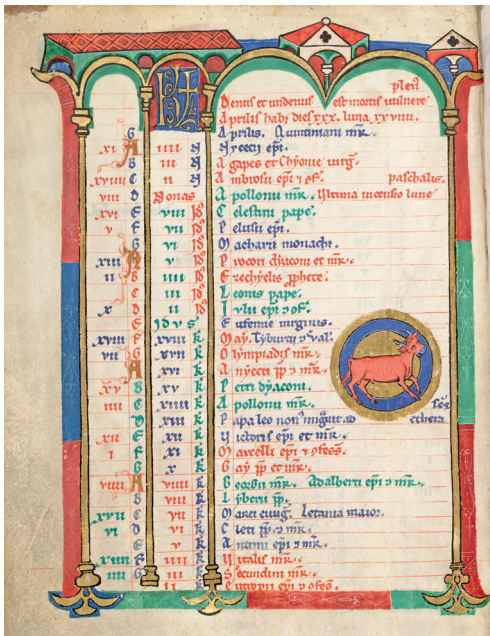 plen9
Denus et undenus est mortis vulnere
Aprilis habet dies xxx. luna xxviiii.
G Aprilis. Quintiani mr.
xi A iiii N Nycecii epi.
B iii N Agapes et Chyonie virg.
xviiii C ii N Ambrosii epi 7 9f. paschalis.
viii D Nonas Apollonii mr. Ultima incensio lune
xvi E viii Id Celestini pape.
v F vii Id Pelusii epi.
G vi Id Macharii monachi.
xiii A v Id Procori dyaconi et mr.
ii B iiii Id Ezechyelis pphete.
C iii Id Leonis pape.
x D ii Id Iulii epi 7 9f.
E Idus Eufemie virginis.
xviii F xviii k May. Tyburcii 7 val.
vii G xvii k Olympiadis mr.
A xvi k Anyceti pp 7 mr.
xv B xv k Petri dyaconi.
iiii C xiiii k Apollonii mr.
D xiii k Papa leo non9 migravit ad ethera
xii E xii k Victoris epi et mr.
i F xi k Marcelli epi 7 9fess.
G x k Gaii pp et mr.
viiii A viiii k Georgii mr. Adalberti epi 7 mr.
B viii k Lyberii pp.
xvii C vii k Marci evvg. Letania maior.
vi D vi k Cleti pp 7 mr.
E v k Antimi epi 7 mr.
xiiii F iiii k Vitalis mr.
iii G iii k Secundini mr.
ii Eutropii epi 7 9fess.